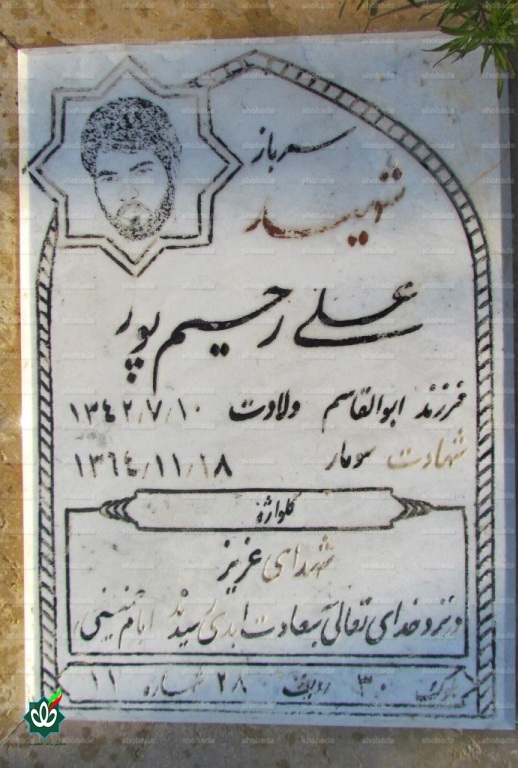 سرباز
شهید
علی رحیم پور
فرزند ابوالقاسم ولادت ۱۳۴۲/۷/۱۰
شهادت سومار ۱۳۶۴/۱۱/۱۸
گلواژه
شهدای عزیز
در نزد خدای تعالی بسعادت ابدی رسیدند امام خمینی
بلوک ۳۰ ردیف ۲۸ شماره ۱۱